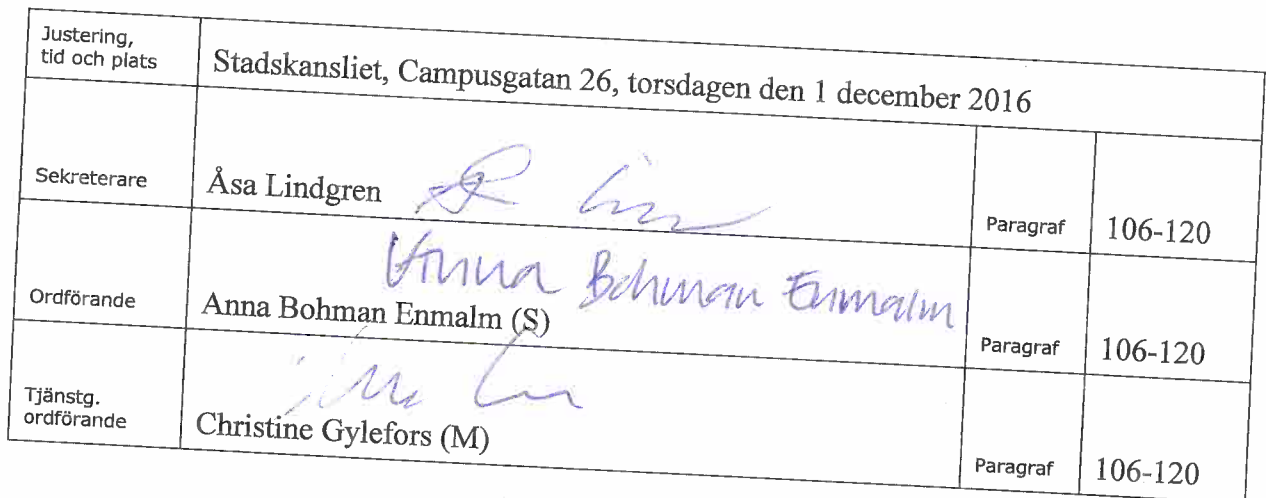 Justering,
tid och plats
Stadskansliet, Campusgatan 26, torsdagen den 1 december 2016
Sekreterare
Åsa Lindgren
Paragraf
106-120
Anna Bohman Enmalm
Ordförande
Anna Bohman Enmalm (S)
Paragraf
106-120
Tjänstg.
ordförande
Christine Gylefors (M)
Paragraf
106-120